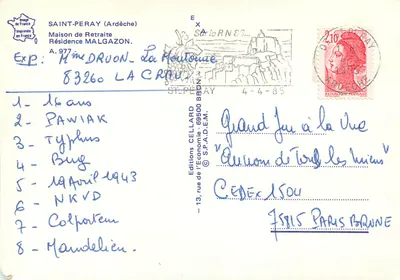 image de France
SAINT-PERAY (Ardèche)
Maison de Retraite
Résidence MALGAZON.
A. 977
Exp: Mme DRUON - La Moutonne
83260 LA CRAU
1 - 16 ans
2 - PAWIAK
3 - Typhus
4 - Bug
5 - 19 Avril 1943
6 - NKVD
7 - Colporteur
8 - Mandelieu.
Editions CELLARD
- 13, rue de l'Economie - 69500 BRON -
© S.P.A.D.E.M.
ST-PERAY
4-4-85
2,10
Grand Jeu à la Une
"Au nom de Tous les Miens"
CEDEX 1504
75815 PARIS BRUNE